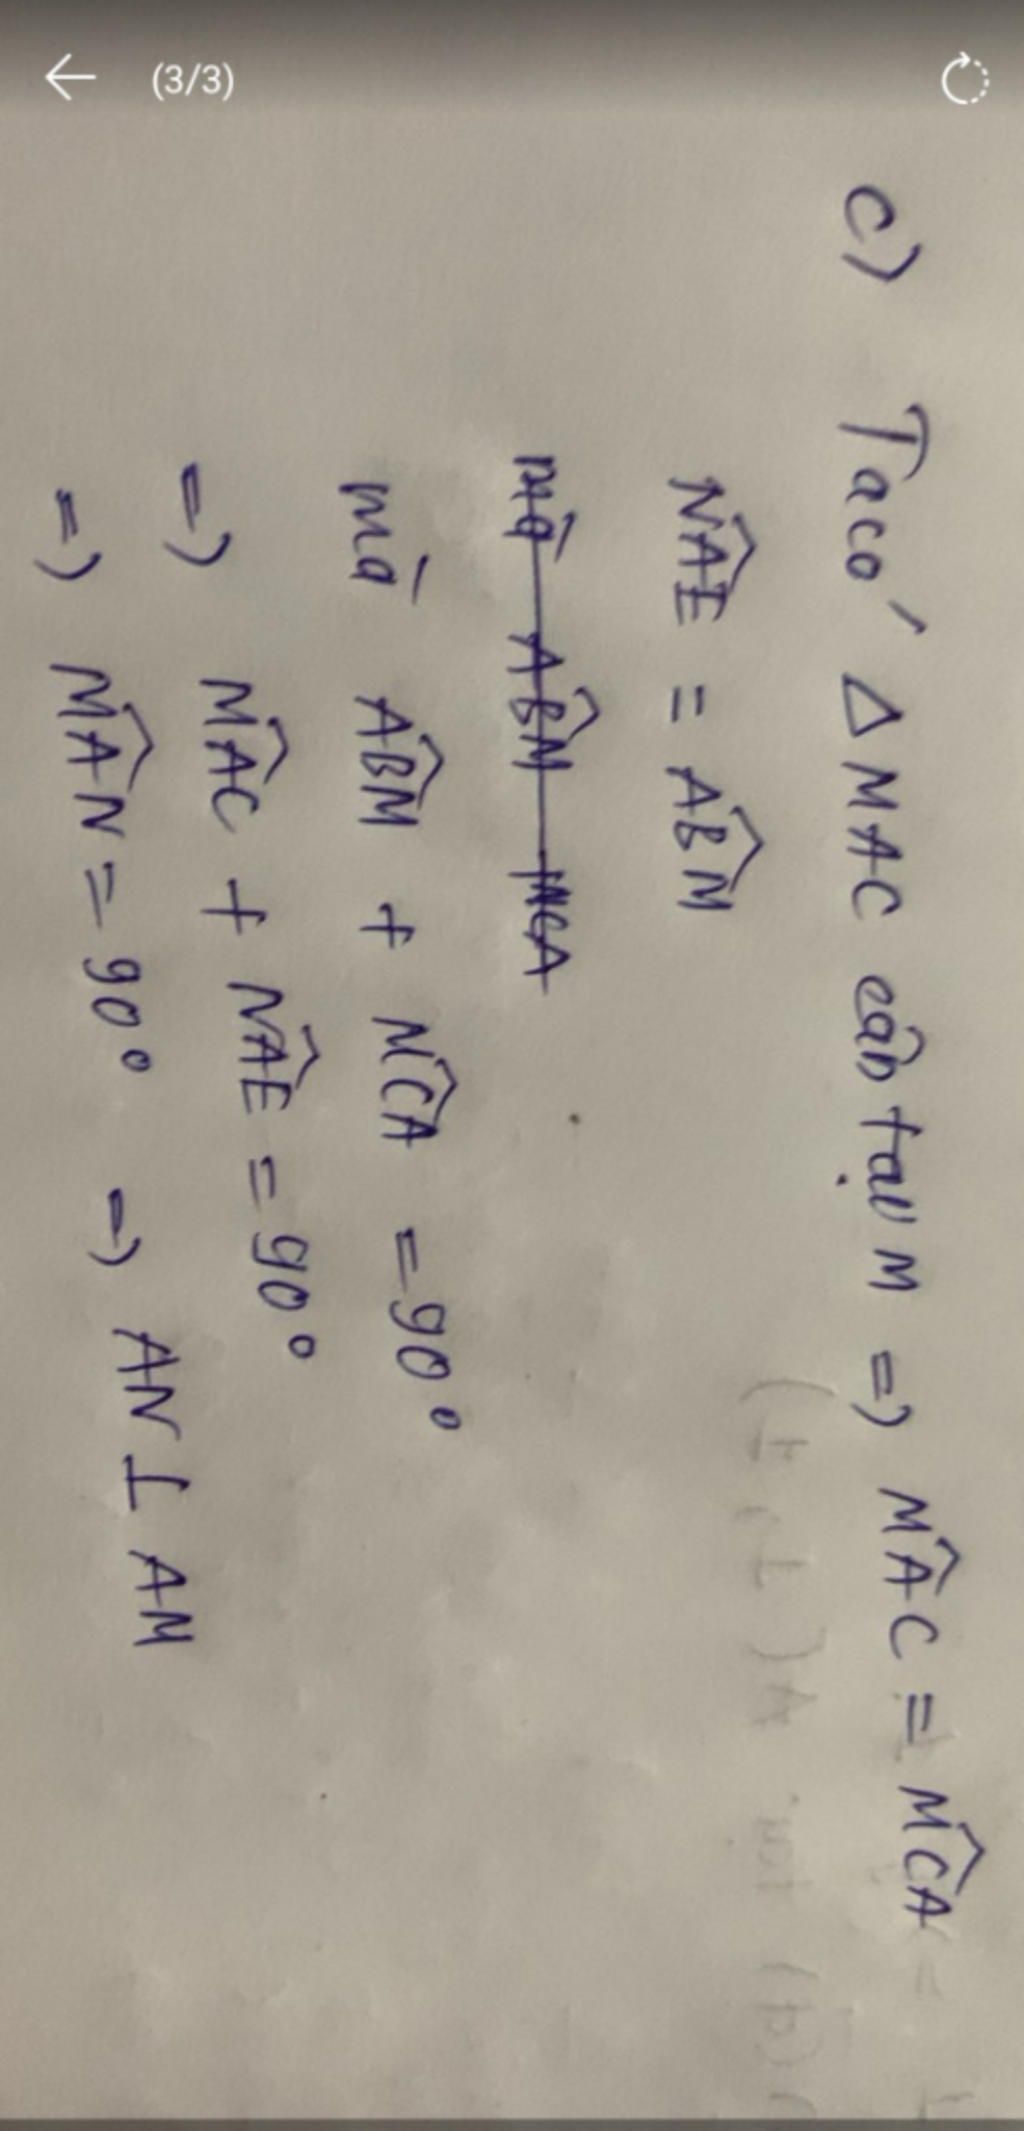 (3/3)
c) Ta có ΔMAC cân tại M => M̂AC = M̂CA
N̂AI = ÂBM
mà ÂBM + M̂CA = 90°
=> M̂AC + N̂AE = 90°
=> M̂AN = 90° => AN ⊥ AM